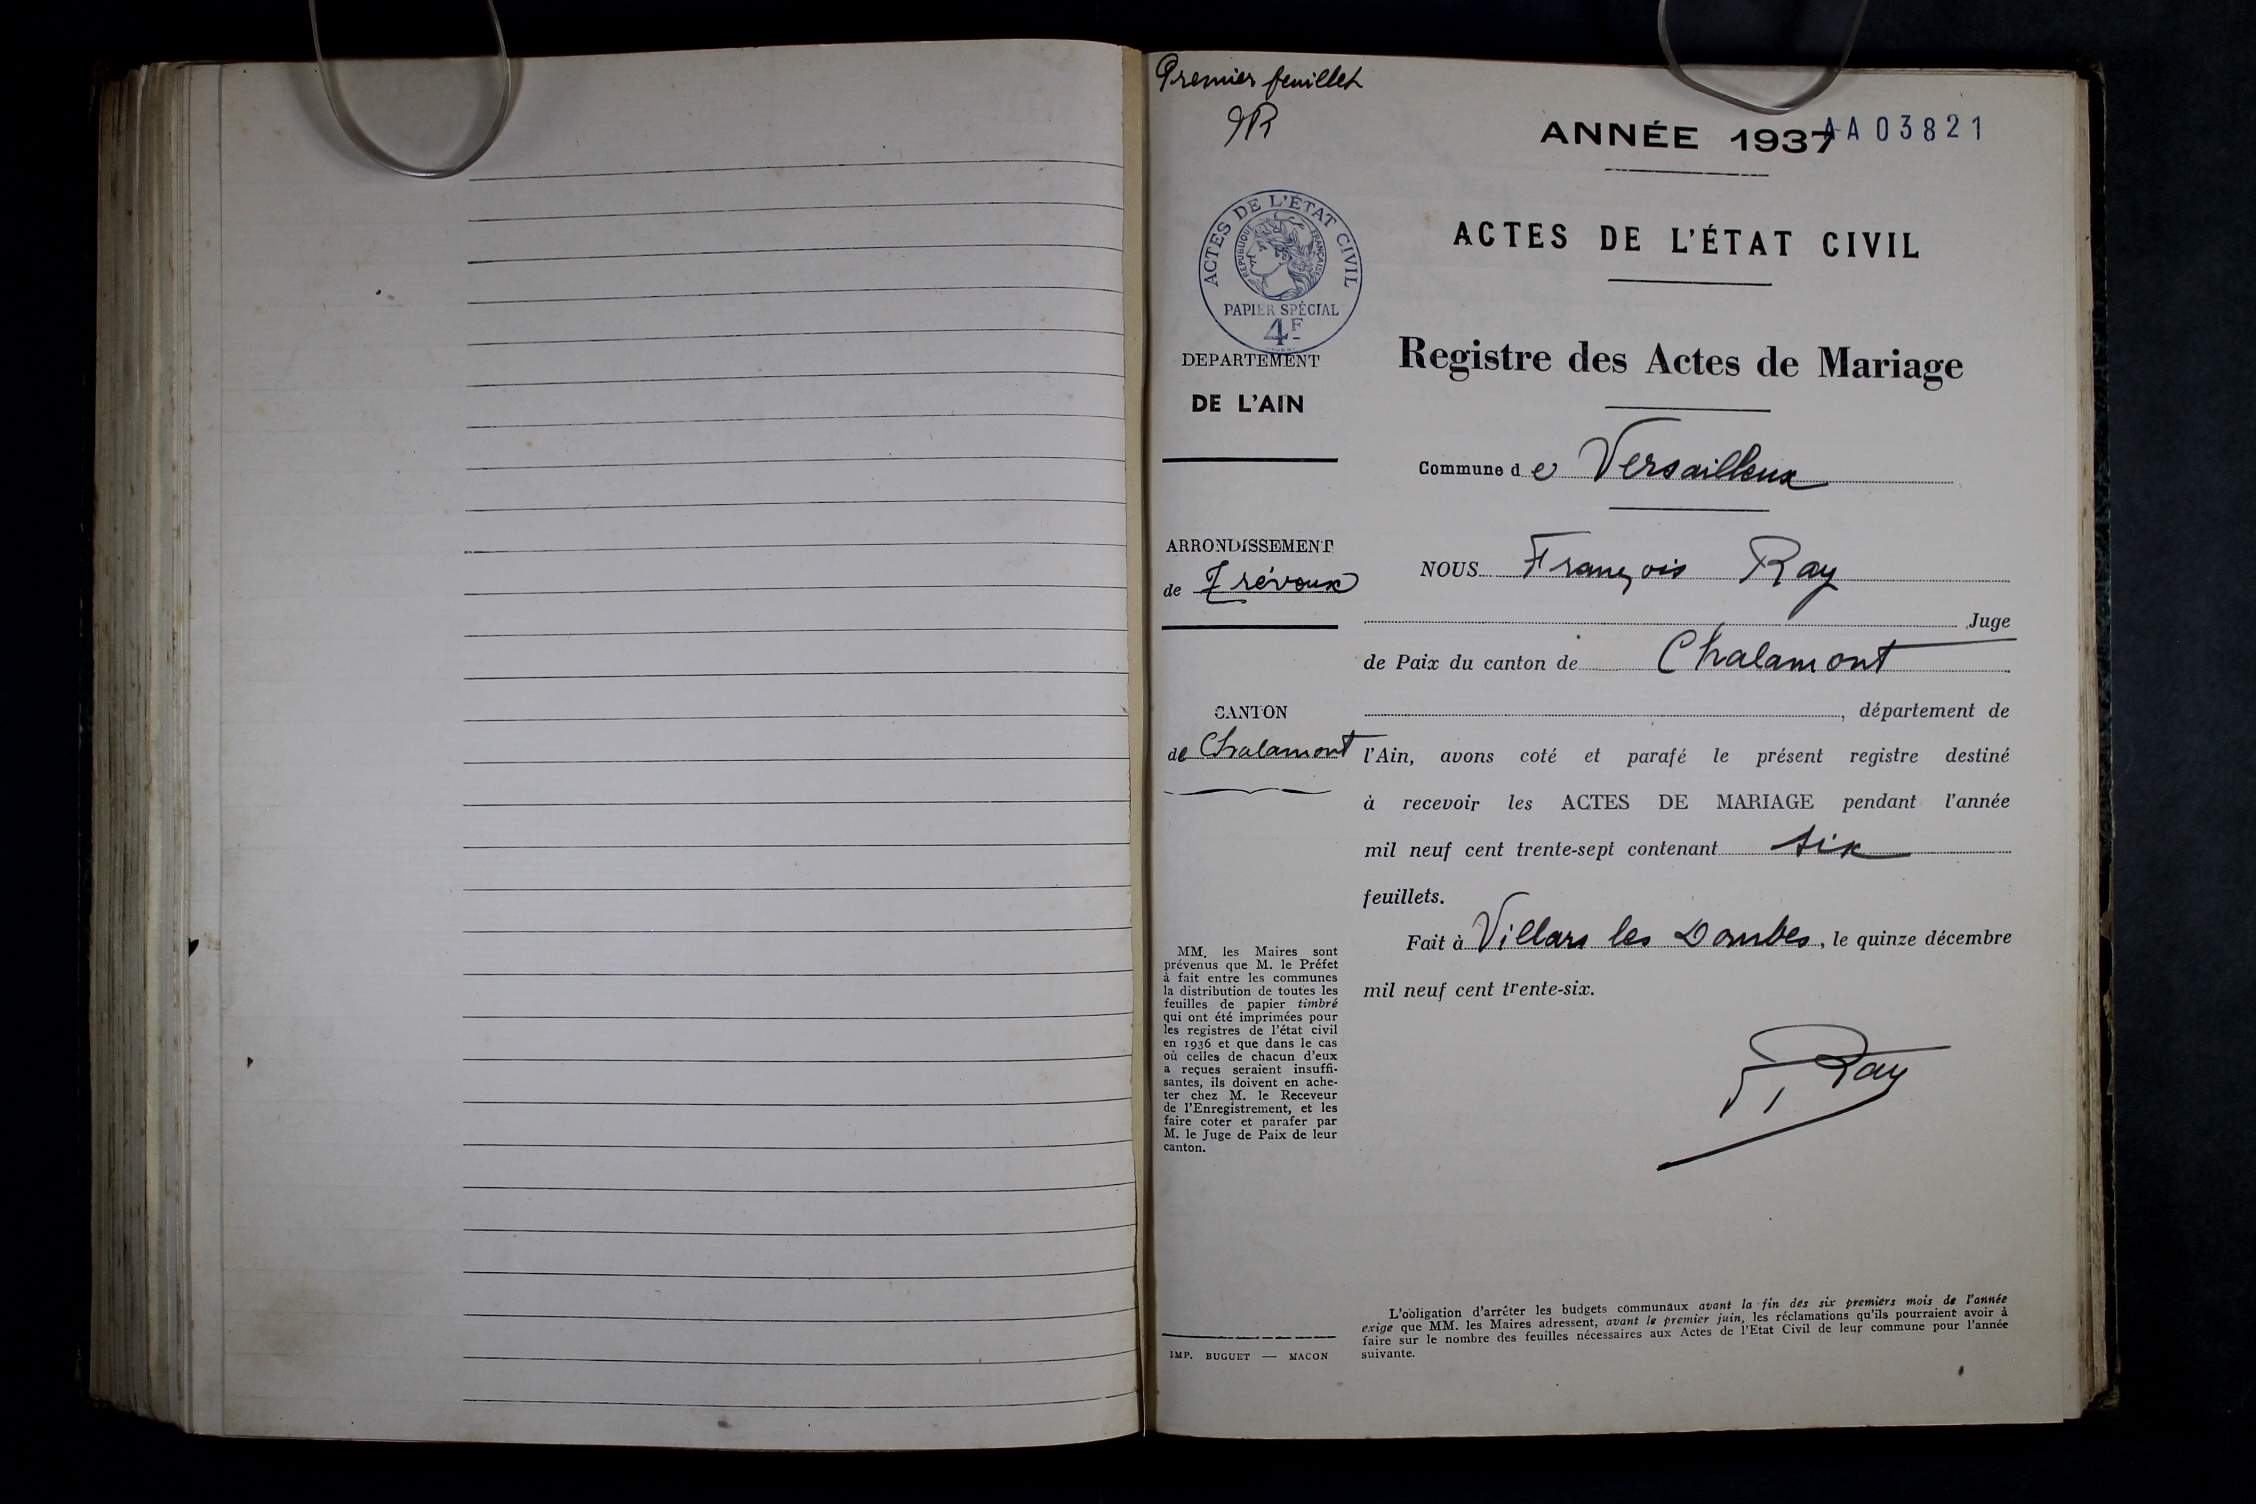 Premier feuillet
FR
ANNÉE 1937
AA03821
ACTES DE L'ÉTAT CIVIL
RÉPUBLIQUE FRANÇAISE
PAPIER SPÉCIAL
4F
DEPARTEMENT
DE L'AIN
ARRONDISSEMENT
de Trévoux
CANTON
de Chalamont
MM. les Maires sont
prévenus que M. le Préfet
à fait entre les communes
la distribution de toutes les
feuilles de papier timbré
qui ont été imprimées pour
les registres de l'état civil
en 1936 et que dans le cas
où celles de chacun d'eux
a reçues seraient insuffi-
santes, ils doivent en ache-
ter chez M. le Receveur
de l'Enregistrement, et les
faire coter et parafer par
M. le Juge de Paix de leur
canton.
IMP. BUGUET — MACON
ACTES DE L'ÉTAT CIVIL
Registre des Actes de Mariage
Commune de Versailleux
NOUS François Ray
Juge
de Paix du canton de Chalamont
, département de
l'Ain, avons coté et parafé le présent registre destiné
à recevoir les ACTES DE MARIAGE pendant l'année
mil neuf cent trente-sept contenant six
feuillets.
Fait à Villars les Dombes, le quinze décembre
mil neuf cent trente-six.
F. Ray
L'obligation d'arrêter les budgets communaux avant la fin des six premiers mois de l'année
exige que MM. les Maires adressent, avant le premier juin, les réclamations qu'ils pourraient avoir à
faire sur le nombre des feuilles nécessaires aux Actes de l'Etat Civil de leur commune pour l'année
suivante.